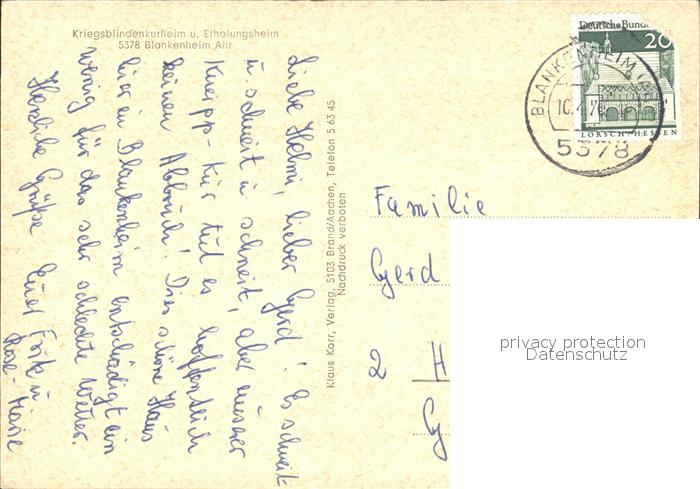 Kriegsblindenkurheim u. Erholungsheim
5378 Blankenheim Ahr
Liebe Helmi, lieber Gerd! Es schneit
u. schneit u. schneit, aber unserer
Kneipp-Kur tut es hoffentlich
keinen Abbruch! Dies schöne Haus
hier in Blankenheim entschädigt ein
wenig für das sehr schlechte Wetter.
Herzliche Grüße Euer Fritz u.
Rose-Marie
Klaus Korr, Verlag, 5103 Brand/Aachen, Telefon 5 63 45
Nachdruck verboten
Deutsche Bund
20
LORSCH/HESSEN
BLANKENHEIM (A
10.4.70
5378
Familie
Gerd
2 H
privacy protection
Datenschutz